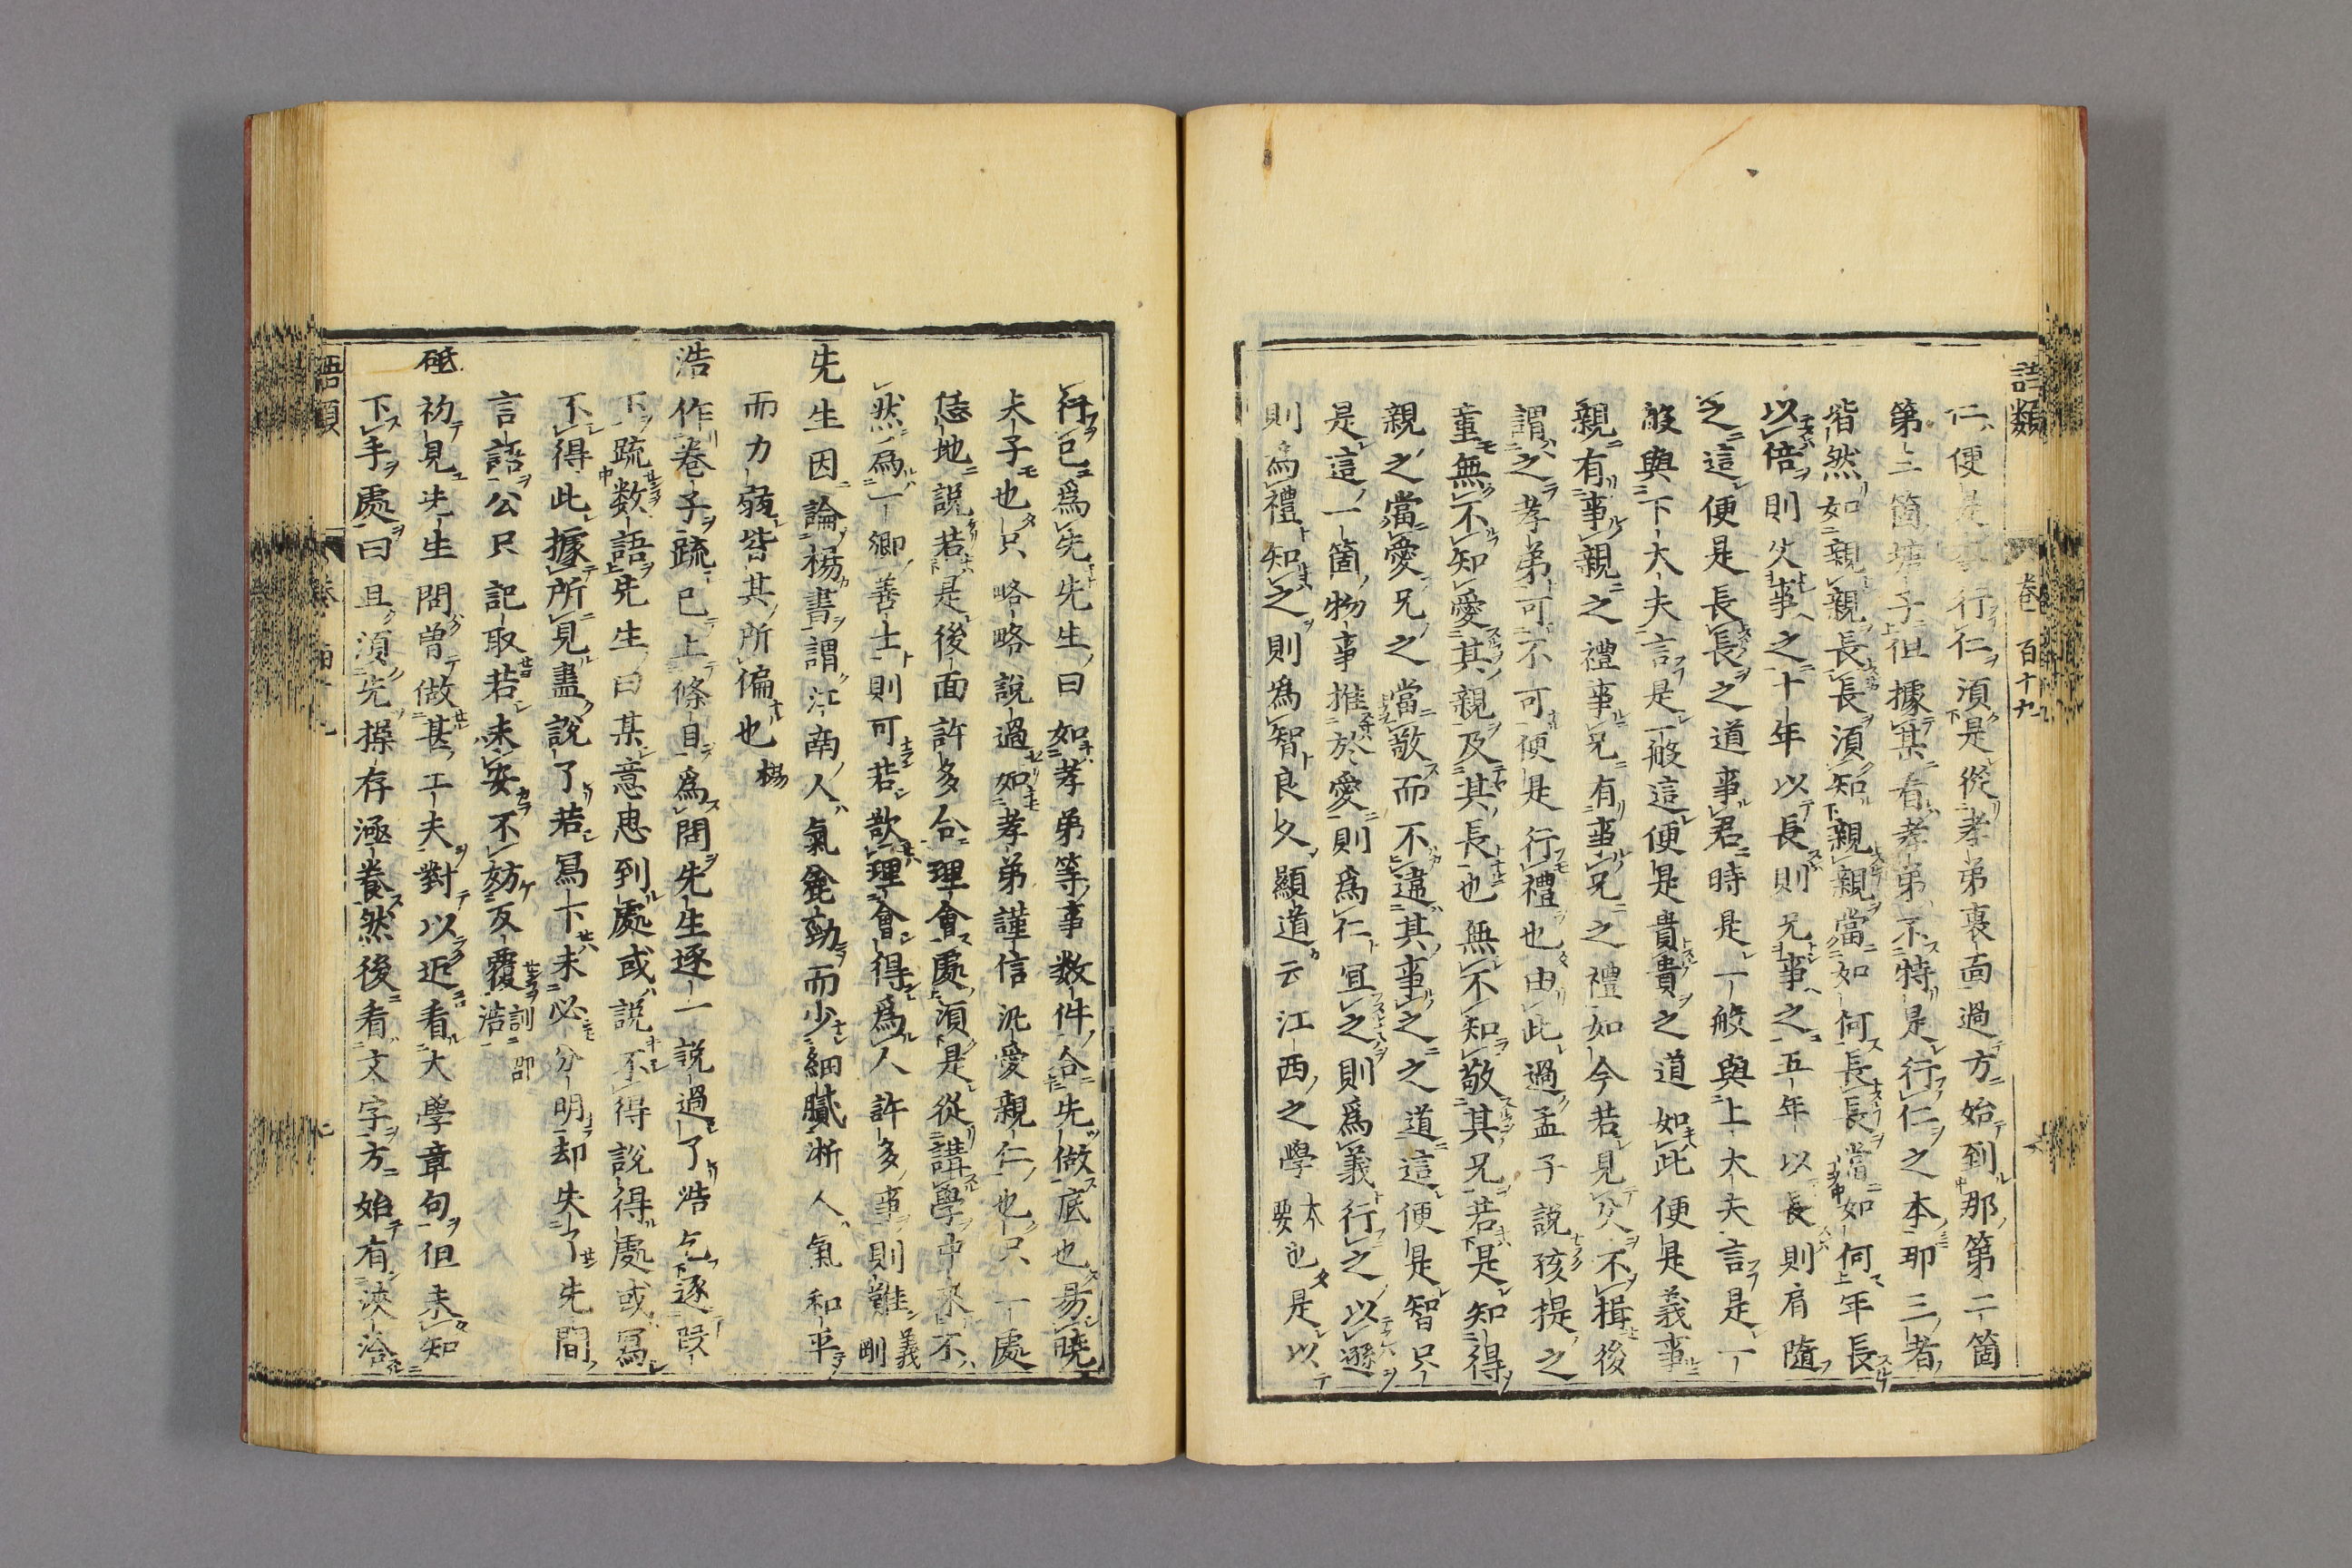 語類 卷百十九 六
仁便是 行仁須是從孝弟裏面過方始到那第二箇
第三箇塘子但據某看孝弟不特是行仁之本那三者
皆然如親親長長須知親親當如何長長當如何年長
以倍則父事之十年以長則兄事之五年以長則肩隨
之這便是長長之道事君時是一般與上大夫言是一
般與下大夫言是一般這便是貴貴之道如此便是義事
親有事親之禮事兄有事兄之禮如今若見父不揖後
謂之孝弟可不可便是行禮也由此過孟子說孩提之
童無不知愛其親及其長也無不知敬其兄若是知得
親之當愛兄之當敬而不違其事之之道這便是智只
是這一箇物事推於愛則爲仁宜之則爲義行之以遜
則爲禮知之則爲智良久顯道云江西之學大要也是以
行己爲先先生曰如孝弟等事数件合先做底也易曉
夫子也只略略說過如孝弟謹信汎愛親仁也只一處
恁地說若是後面許多合理會處須是從講學中來不
然爲一鄉善士則可若欲理會得爲人許多事則難 義剛
先生因論楊書謂江南人氣麄勁而少細膩浙人氣和平
而力弱皆其所偏也 楊
浩作卷子疏已上條目爲問先生逐一說過了浩乞逐段
下疏数語先生曰某意思到處或說不得說得處或寫
不得此據所見盡說了若寫下未必分明却失了先間
言語公只記取若未安不妨反覆 訓浩 卲
砥初見先生問曽做甚工夫對以近看大學章句但未知
下手處曰且須先操存涵養然後看文字方始有浹洽
語類